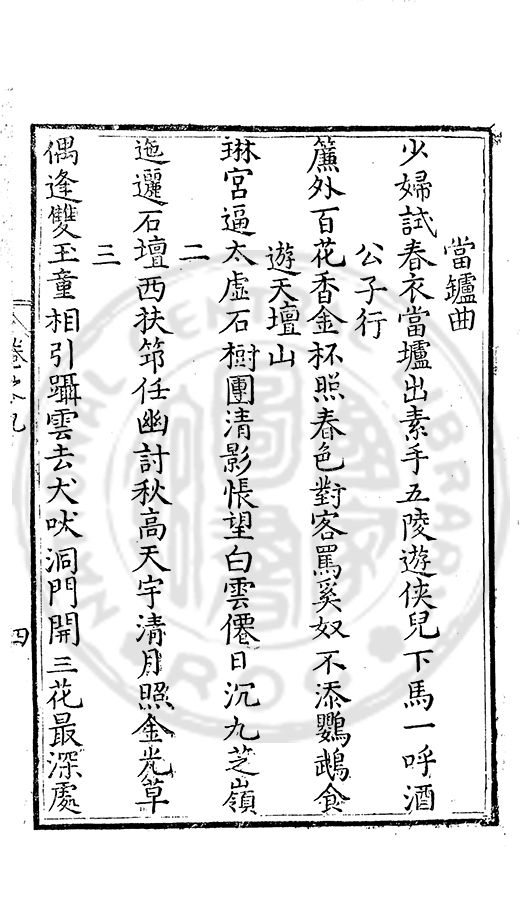 當鑪曲
少婦試春衣當壚出素手五陵遊俠兒下馬一呼酒
公子行
簾外百花香金杯照春色對客罵奚奴不添鸚鵡食
遊天壇山
琳宮逼太虛石樹團清影悵望白雲僊日沉九芝嶺
二
迤邐石壇西扶筇任幽討秋高天宇清月照金光草
三
偶逢雙玉童相引躡雲去犬吠洞門開三花最深處
卷之九
四